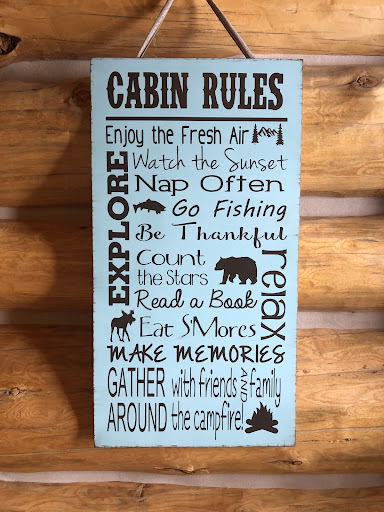 CABIN RULES
Enjoy the Fresh Air
EXPLORE
Watch the Sunset
Nap Often
Go Fishing
Be Thankful
Count
the Stars
relax
Read a Book
Eat S'Mores
MAKE MEMORIES
GATHER with friends AND family
AROUND the campfire!